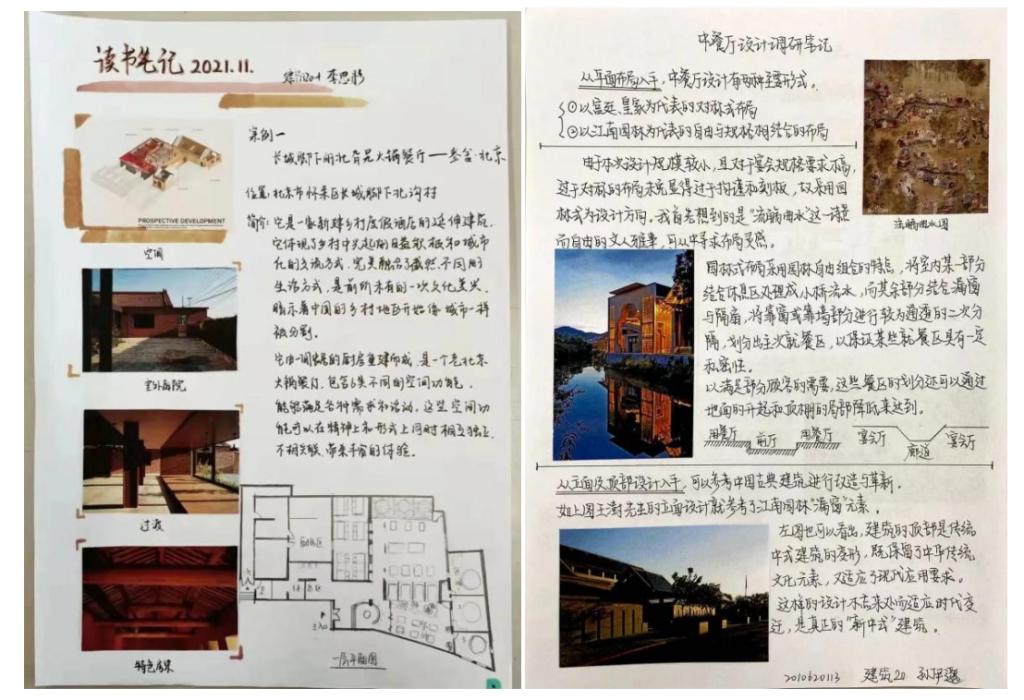 读书笔记 2021.11.
案例一
长城脚下的北旮旯火锅餐厅——参舍·北京
位置:北京市怀柔区长城脚下北沟村
简介:它是一家新建乡村度假酒店的延伸建筑,
它体现了乡村中兴起的日益
化的交流方式,完美融合了截然不同的
生活方式,是前所未有的一次文化复兴,
暗示着中国的乡村地区开始像城市一样
被分割。
它由一间的厨房重建而成,是一个老北京
火锅餐厅,包含6类不同的空间功能,
能够满足各种需求和活动,这些空间功
能可以在精神上和形式上同时相互独立,
不相关联,带来丰富的体验。
PROSPECTIVE DEVELOPMENT
空间
室外庭院
过渡
特色屋架
主入口
一层平面图
中餐厅设计调研笔记
从平面布局入手,中餐厅设计有两种主要形式。
①以宫廷、皇家为代表的对称式布局
②以江南园林为代表的自由与规格相结合的布局
由于本次设计规模较小,且对于宴会规格要求不高,
过于对称的布局未免显得过于拘谨和刻板,故采用园
林式为设计方向。我首先想到的是“流觞曲水”这一诗意
而自由的文人雅事,可从中寻求布局灵感。
流觞曲水图
园林式布局采用园林自由组合的特点,将室内某一部分
结合休息区处理成小桥流水,而其余部分结合漏窗
与隔扇,将靠窗或靠墙部分进行较为通透的二次分
隔,划分出主次就餐区,以保证某些就餐区具有一定
私密性。
以满足部分顾客的需要,这些餐区的划分还可以通过
地面的升起和顶棚的局部降低来达到。
用餐厅 前厅 用餐厅 宴会厅 廊道 宴会厅
从立面及顶部设计入手,可以参考中国古典建筑进行改造与革新。
如上图王澍先生的立面设计就参考了江南园林“漏窗”元素。
左图也可以看出,建筑的顶部是传统
中式建筑的变形,既保留了中华传统
文化元素,又适应了现代应用要求。
这样的设计不古某处而适应时代变
迁,是真正的“新中式”建筑。
2010620113 建筑20